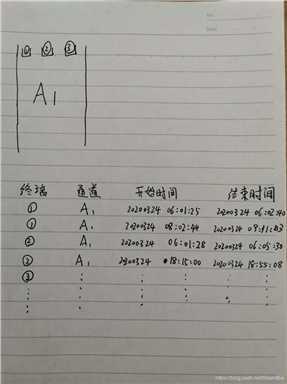 ① ② ③
A₁
终端 通道 开始时间 结束时间
① A₁ 20200324 06:01:25 20200324 06:02:40
① A₁ 20200324 08:02:44 20200324 09:41:43
② A₁ 20200324 06:01:28 20200324 06:05:30
② A₁ 20200324 18:15:00 20200324 18:55:08
③